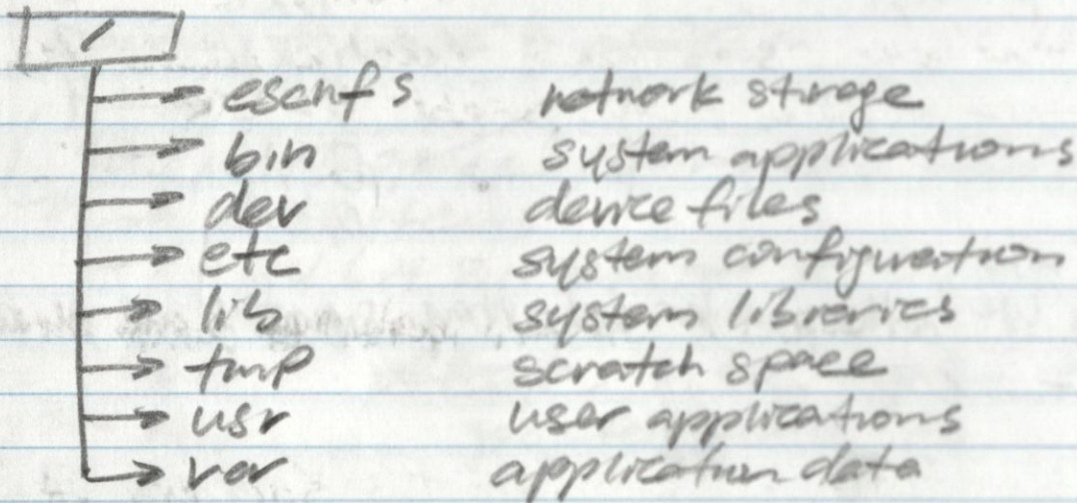 /
escnfs network storage
bin system applications
dev device files
etc system configuration
lib system libraries
tmp scratch space
usr user applications
var application data